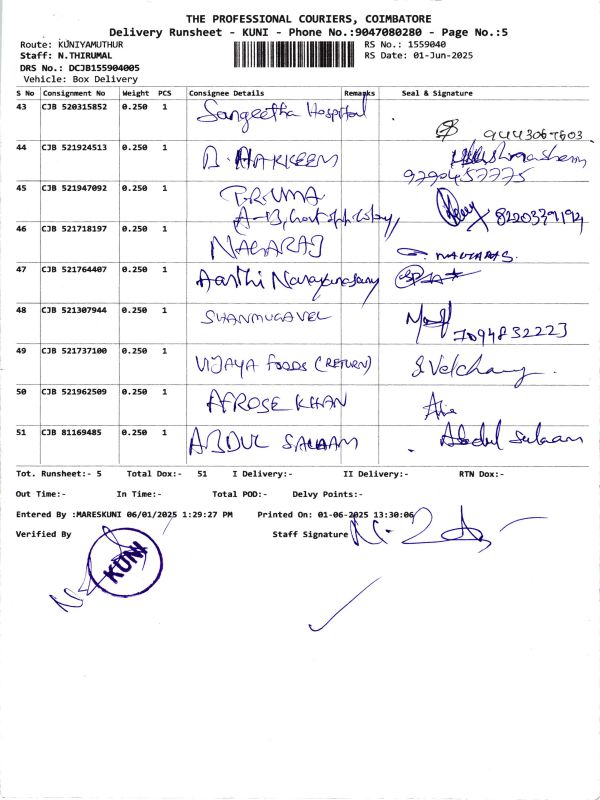 THE PROFESSIONAL COURIERS, COIMBATORE
Delivery Runsheet - KUNI - Phone No.:9047080280 - Page No.:5
Route: KUNIYAMUTHUR
RS No.: 1559040
Staff: N.THIRUMAL
RS Date: 01-Jun-2025
DRS No.: DCJB155904005
Vehicle: Box Delivery
S No Consignment No Weight PCS Consignee Details Remarks Seal & Signature
43 CJB 520315852 0.250 1 Sangeetha Hospital
44 CJB 521924513 0.250 1 A. HAKKEEM
9790457775
45 CJB 521947092 0.250 1 T.R. UMA
8220379194
46 CJB 521718197 0.250 1 NAGARAJ
47 CJB 521764407 0.250 1 Aarthi Narayanasamy
48 CJB 521307944 0.250 1 SHANMUGAVEL
7094832223
49 CJB 521737100 0.250 1 VIJAYA FOODS (RETURN)
50 CJB 521962509 0.250 1 AFROSE KHAN
51 CJB 81169485 0.250 1 ABDUL SALAAM Abdul Salaam
Tot. Runsheet:- 5 Total Dox:- 51 I Delivery:- II Delivery:- RTN Dox:-
Out Time:- In Time:- Total POD:- Delvy Points:-
Entered By :MARESKUNI 06/01/2025 1:29:27 PM Printed On: 01-06-2025 13:30:06
Verified By Staff Signature
KUNI